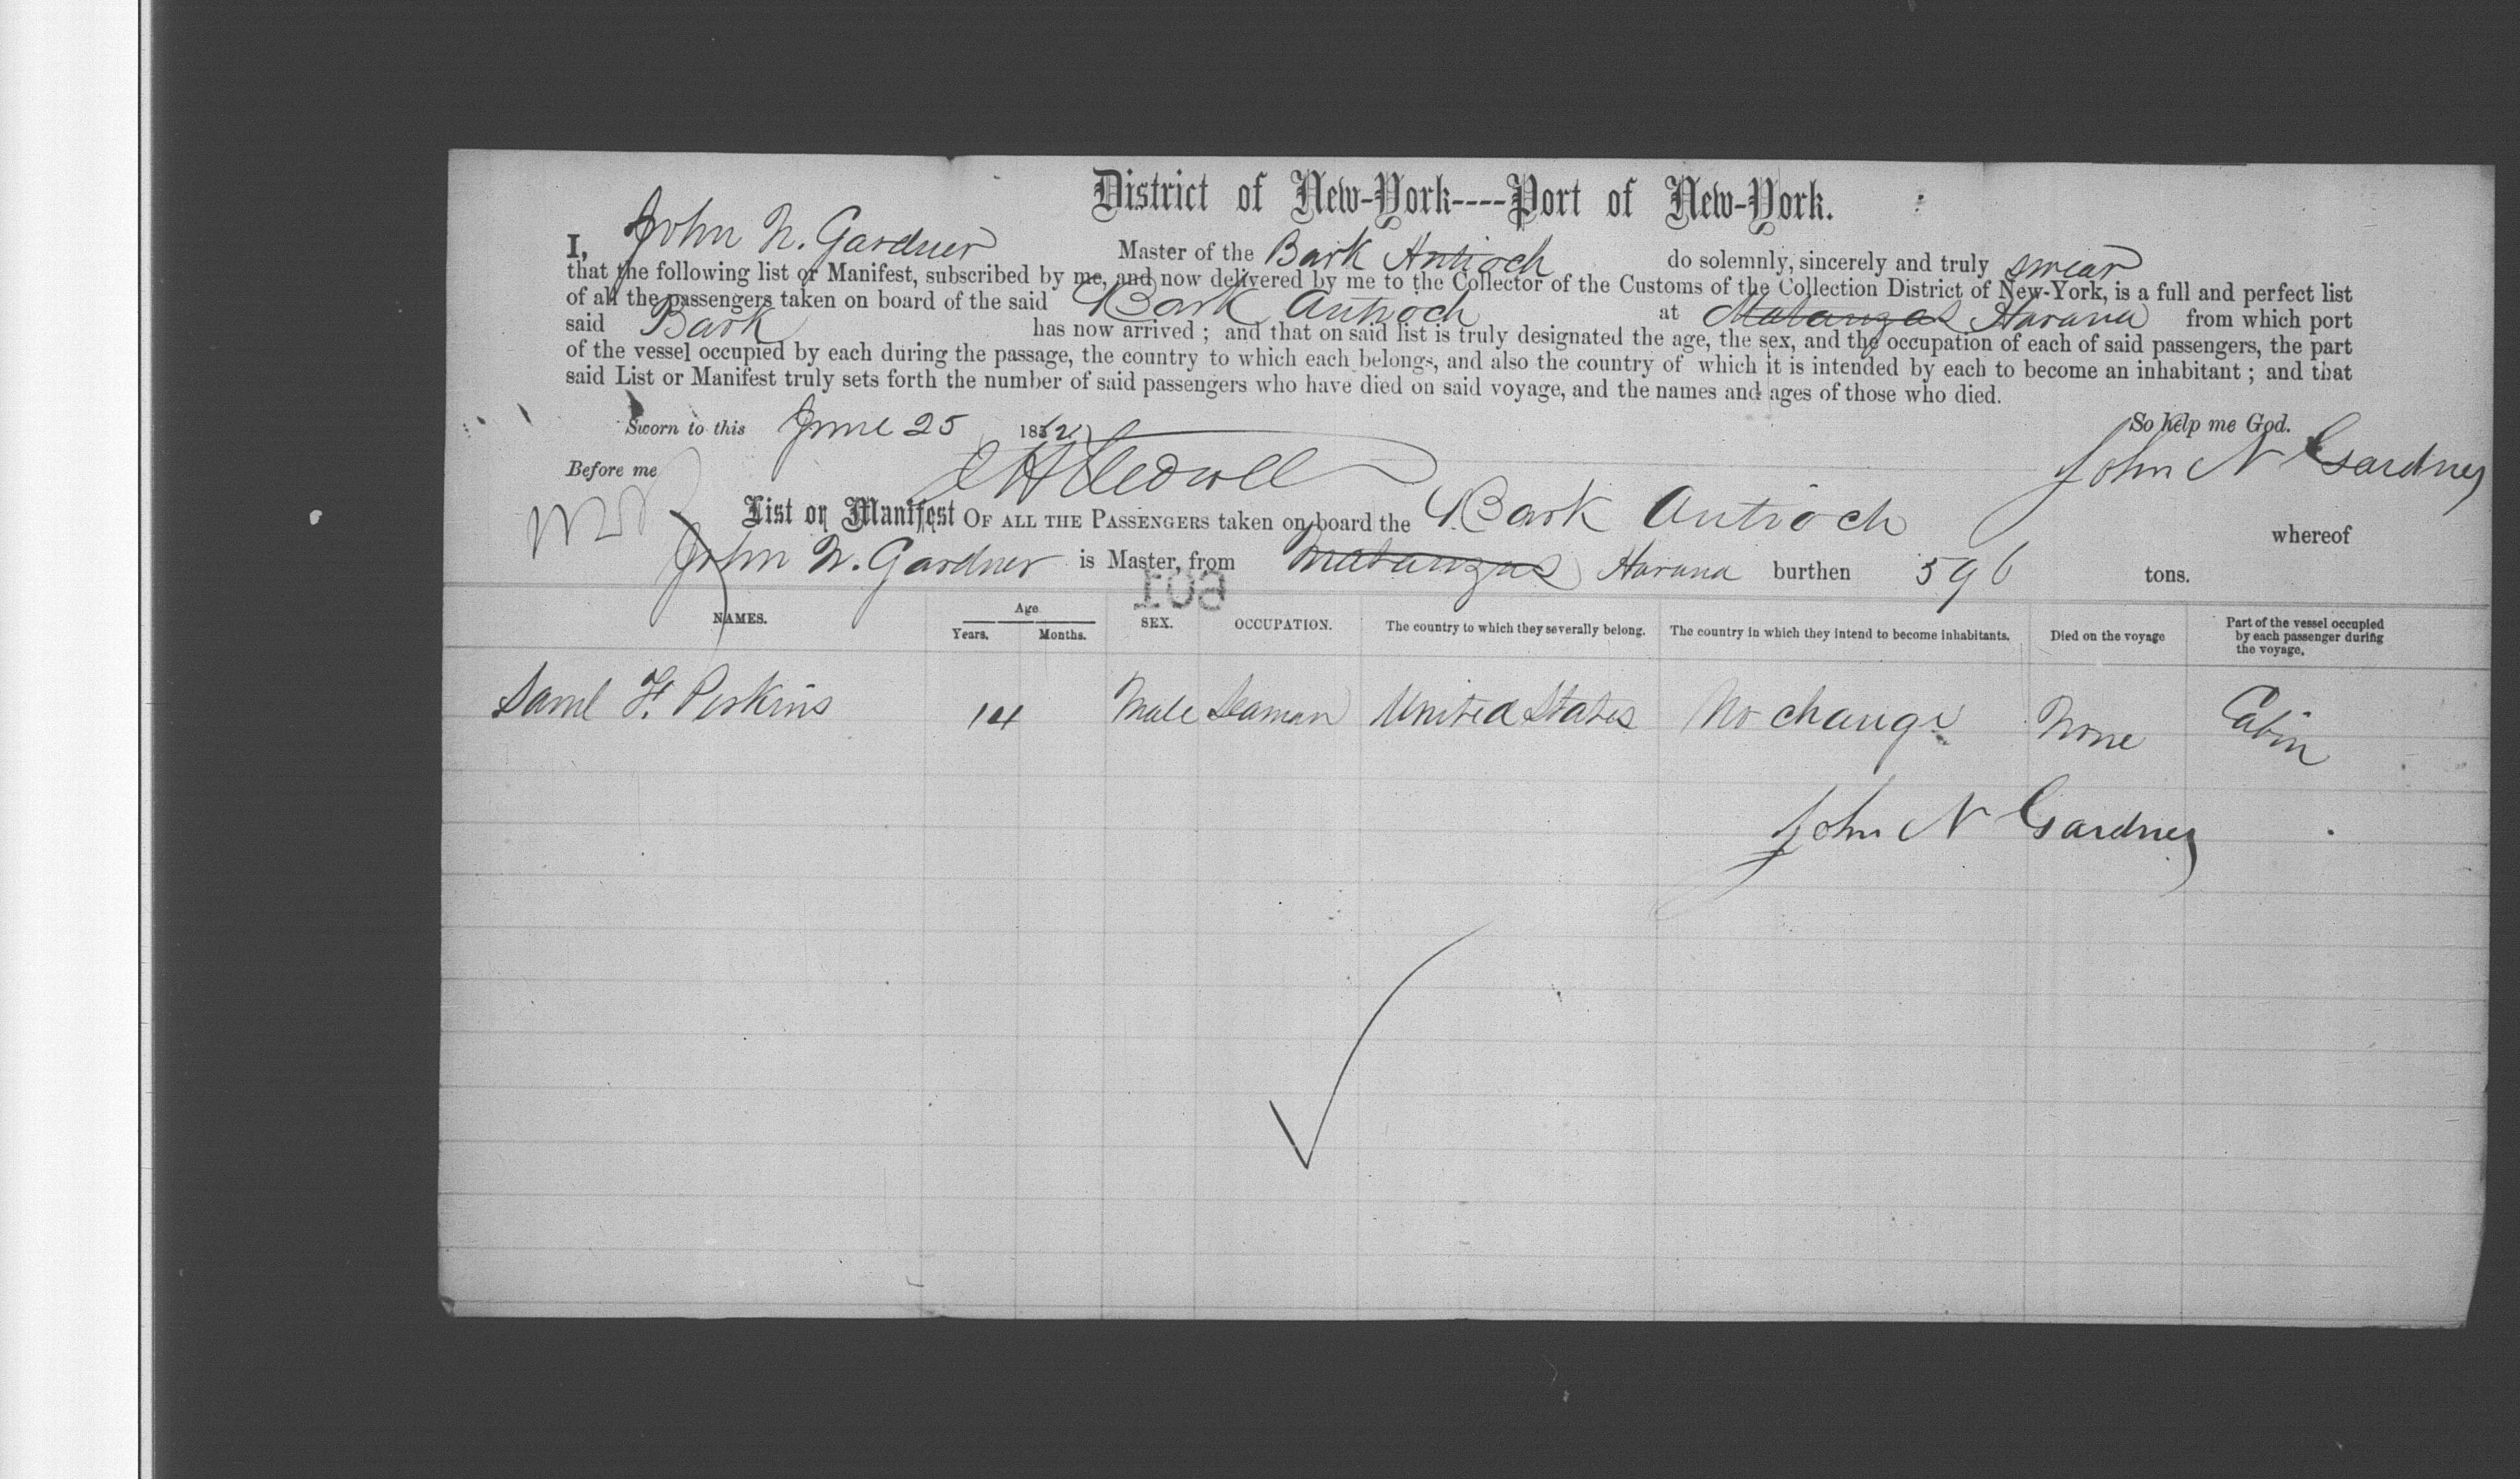 District of New-York----Port of New-York.
I, John N. Gardner Master of the Bark Antioch do solemnly, sincerely and truly swear
that the following list or Manifest, subscribed by me, and now delivered by me to the Collector of the Customs of the Collection District of New-York, is a full and perfect list
of all the passengers taken on board of the said Bark Antioch at Matanzas Havana from which port
said Bark has now arrived ; and that on said list is truly designated the age, the sex, and the occupation of each of said passengers, the part
of the vessel occupied by each during the passage, the country to which each belongs, and also the country of which it is intended by each to become an inhabitant ; and that
said List or Manifest truly sets forth the number of said passengers who have died on said voyage, and the names and ages of those who died.
Sworn to this June 25 1862 So help me God.
Before me John N Gardner
List or Manifest OF ALL THE PASSENGERS taken on board the Bark Antioch whereof
John N. Gardner is Master, from Matanzas Havana burthen 596 tons.
NAMES. Age Years. Months. SEX. OCCUPATION. The country to which they severally belong. The country in which they intend to become inhabitants. Died on the voyage Part of the vessel occupied by each passenger during the voyage.
Saml F. Perkins 14 Male Seaman United States No change None Cabin
John N Gardner